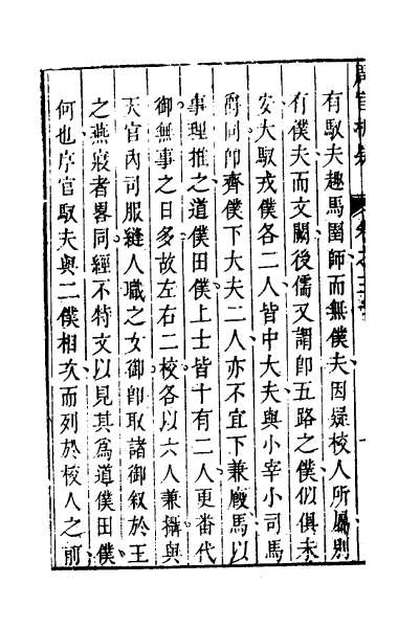 有馭夫趣馬圉師而無僕夫因疑校人所屬別
有僕夫而文闕後儒又謂卽五路之僕似俱未
安大馭戎僕各二人皆中大夫與小宰小司馬
爵同卽齊僕下大夫二人亦不宜下兼廐馬以
事理推之道僕田僕上士皆十有二人更番代
御無事之日多故左右二校各以六人兼攝與
天官內司服縫人職之女御卽取諸御敘於王
之燕寢者畧同經不特文以見其爲道僕田僕
何也序官馭夫與二僕相次而列於校人之前